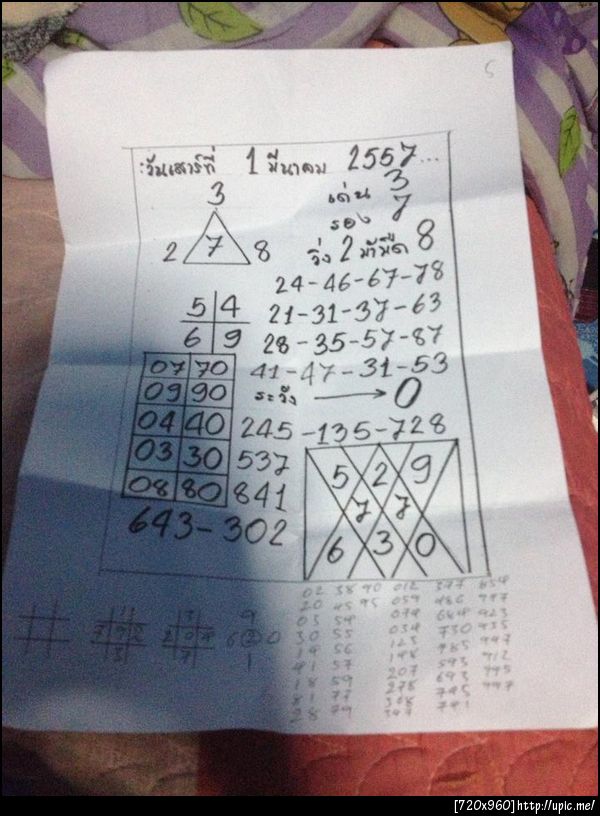 5
:วันเสาร์ที่ 1 มีนาคม 2557...
3
2 7 8
เด่น 3
รอง 7
วิ่ง 2 ม้ามืด 8
24-46-67-78
5 4
6 9
21-31-37-63
28-35-57-87
41-47-31-53
ระวัง → 0
07 70
09 90
04 40
03 30
08 80
245-135-728
537
841
643-302
5 2 9
7 7
6 3 0
02 38 90 012 377
20 45 95 059 486 997
03 54 074 644 923
30 55 034 730 935
14 56 123 785 997
41 57 148 593 912
18 59 207 693 995
81 77 278 795 997
28 79 308 791
347
9
6 2 0
1
[720x960]http://upic.me/